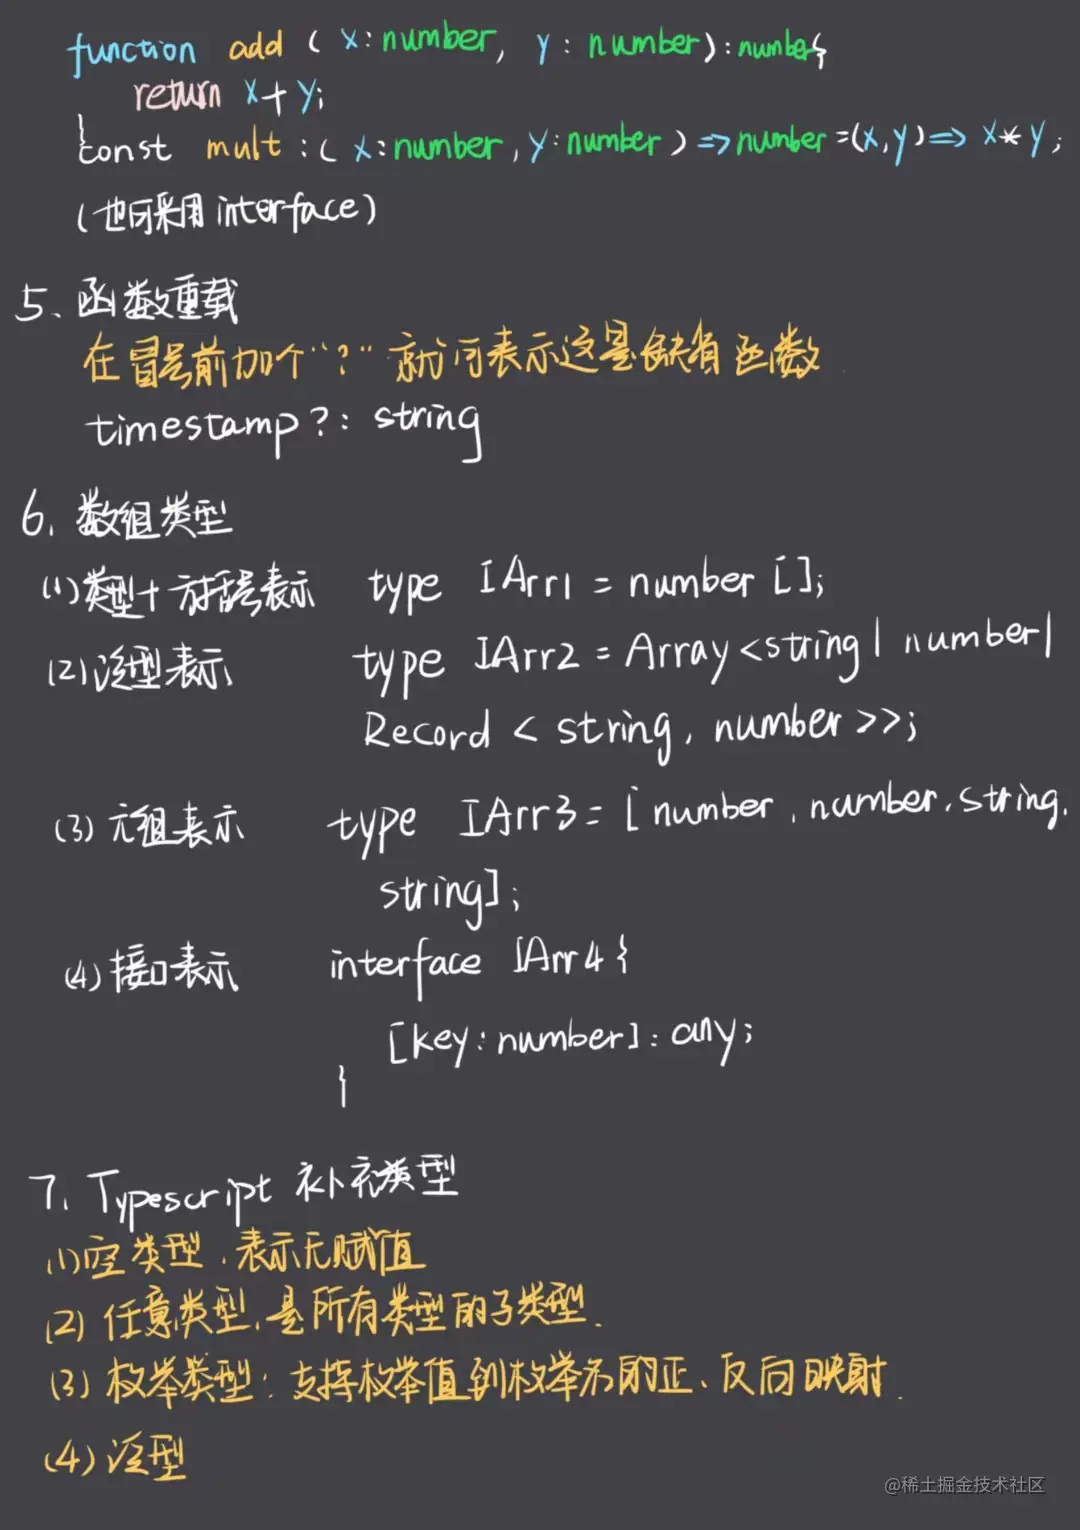 function add ( x: number, y: number): number{
return x+y;
}
const mult : ( x: number, y: number ) => number =(x,y)=> x*y;
(也可采用interface)
5、函数重载
在冒号前加个"?"就可表示这是缺省函数
timestamp?: string
6、数组类型
(1)类型+方括号表示 type IArr1 = number [];
(2)泛型表示 type IArr2 = Array<string| number|
Record < string, number >>;
(3)元组表示 type IArr3 = [number, number, string,
string];
(4)接口表示 interface IArr4 {
[key: number]: any;
}
7、Typescript 补充类型
(1)空类型,表示无赋值
(2)任意类型,是所有类型的子类型.
(3)枚举类型:支持枚举值到枚举名的正、反向映射.
(4)泛型
@稀土掘金技术社区